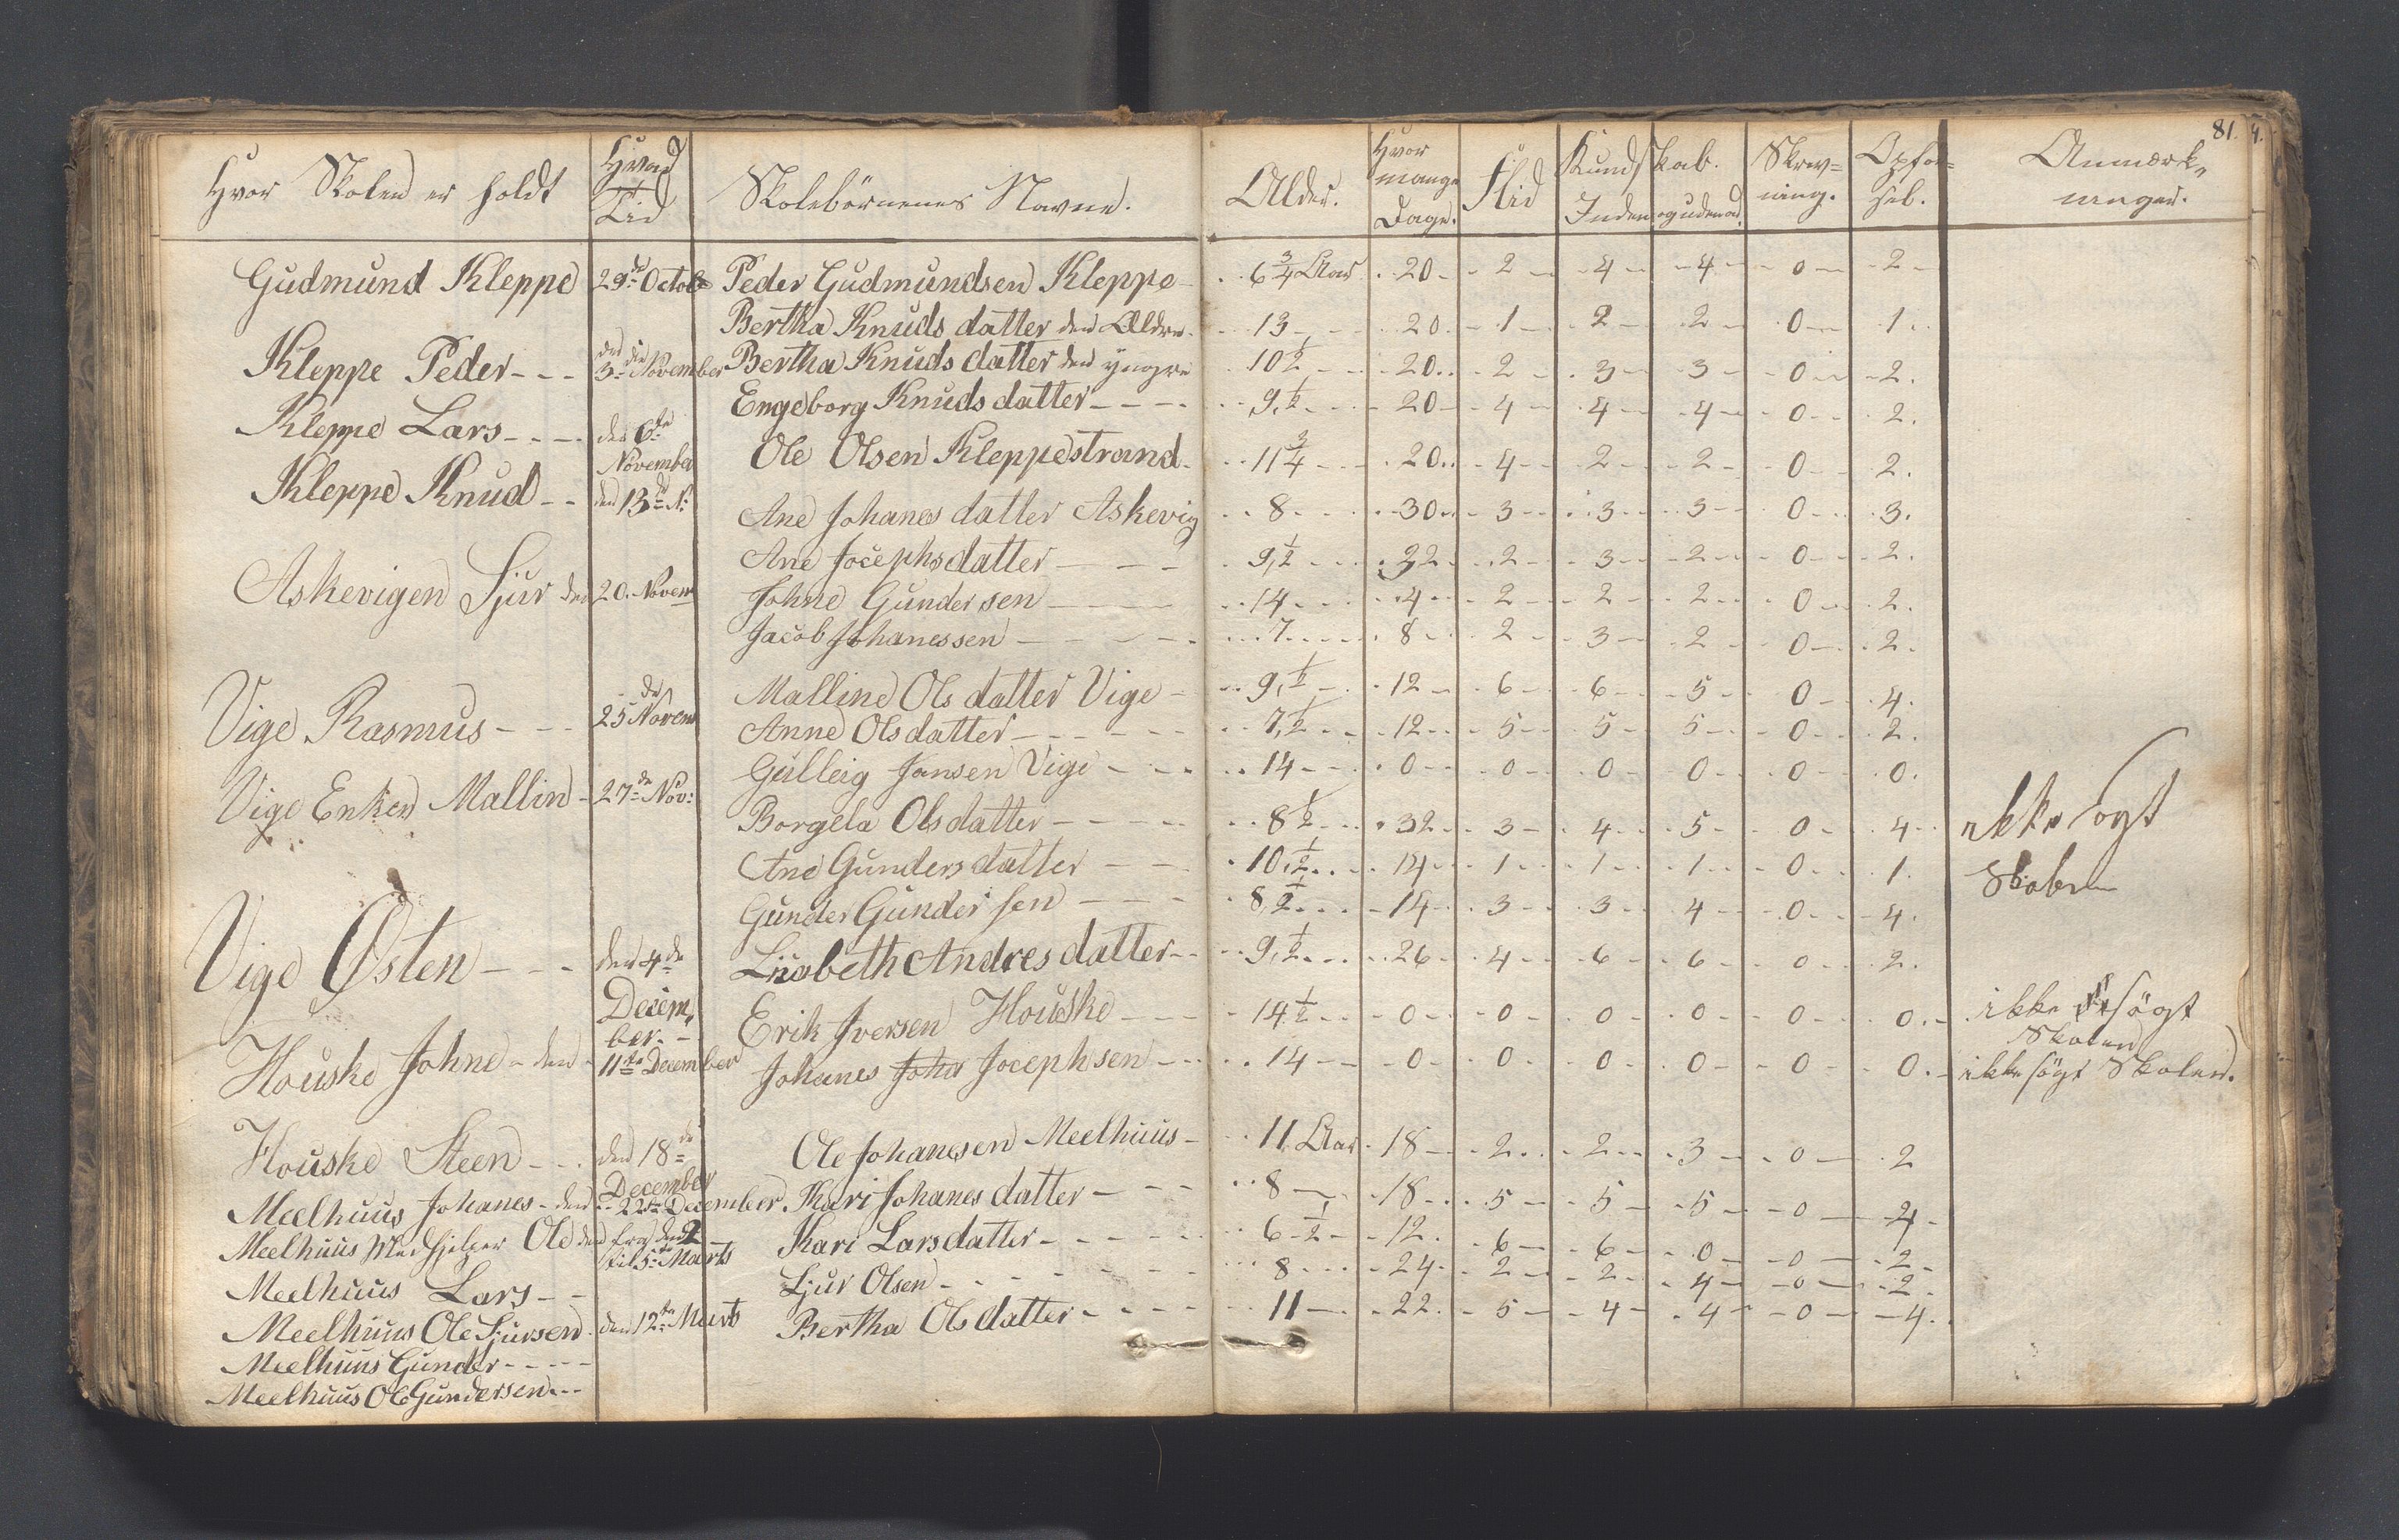 81.
Hvor Skolen er holdt
Hvad Tid
Skolebörnenes Navne.
Alder.
Hvor mange Dage.
Flid
Kundskab. Inden og udenad.
Skrivning.
Opförsel.
Anmærkninger.
Gudmund Kleppe 29de Octob
Kleppe Peder - - - 3de November
Kleppe Lars - - - den 6te November
Kleppe Knud - - den 13de N:
Askevigen Sjur den 20. Novem
Vige Rasmus - - - 25de Novem
Vige Enken Mallin - 27de Nov:
Vige Østen - - - den 4de Decem, ber. -
Houske Johne - den - 11te December
Houske Steen - - . den 18de December
Meelhuus Johanes - den - 22de December.
Meelhuus Medhjelper Ole den fra til 5te Marts
Meelhuus Lars - -
Meelhuus Ole Sjursen. den 12te Marts
Meelhuus Gunder - - - - -
Meelhuus Ole Gundersen - - -
Peder Gudmundsen Kleppe - 6 3/4 Aar 20 2 4 4 0 2
Bertha Knuds datter den Ældre. 13 20 1 2 2 0 1
Bertha Knuds datter den yngre 10 1/2 20 2 3 3 0 2.
Engeborg Knuds datter - - - - 9, 1/2 20 4 4 4 0 2.
Ole Olsen Kleppestrand - 11 3/4 20 4 2 2 0 2.
Ane Johanes datter Askevig 8 30 3 3 3 0 3.
Ane Jocephs datter - - - 9, 1/2 32 2 3 2 0 2.
Johne Gundersen - - - 14 4 2 2 2 0 2.
Jacob Johanessen - - - - - 7 8 2 3 2 0 2.
Malline Ols datter Vige - 9, 1/2 12 6 6 5 0 4.
Anne Olsdatter - - - - - - 7, 1/2 12 5 5 5 0 2.
Gulleig Jansen Vige - - - 14 0 0 0 0 0 0. ikke sögt Skolen
Borgela Olsdatter - - - - - 8 1/2 32 3 4 5 0 4
Ane Gunders datter - - - 10, 1/2 14 1 1 1 0 1.
Gunder Gundersen - - - - 8, 1/2 14 3 3 4 0 4.
Lisabeth Andres datter - - 9, 1/2 26 4 6 6 0 2.
Erik Iversen Houske - - - 14 1/2 0 0 0 0 0 0. ikke sögt Skolen
Johanes Joha Jocephsen - - 14 0 0 0 0 0 0. ikke sögt Skolen.
Ole Johanesen Meelhuus - 11 Aar 18 2 2 3 0 2
Kari Johanes datter - - - 8 18 5 5 5 0 4
Kari Larsdatter - - - - - 6 1/2 12 6 6 0 0 2
Sjur Olsen - - - - - - - 8 24 2 2 4 0 2.
Bertha Ols datter - - - - 11 22 5 4 4 0 4.